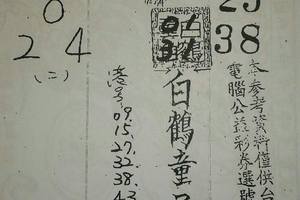 0
2 4
(二)
25
38
本參考資料僅供台
電腦公益彩券選號
白鶴童
港号09.
15.
27.
32.
38.
43